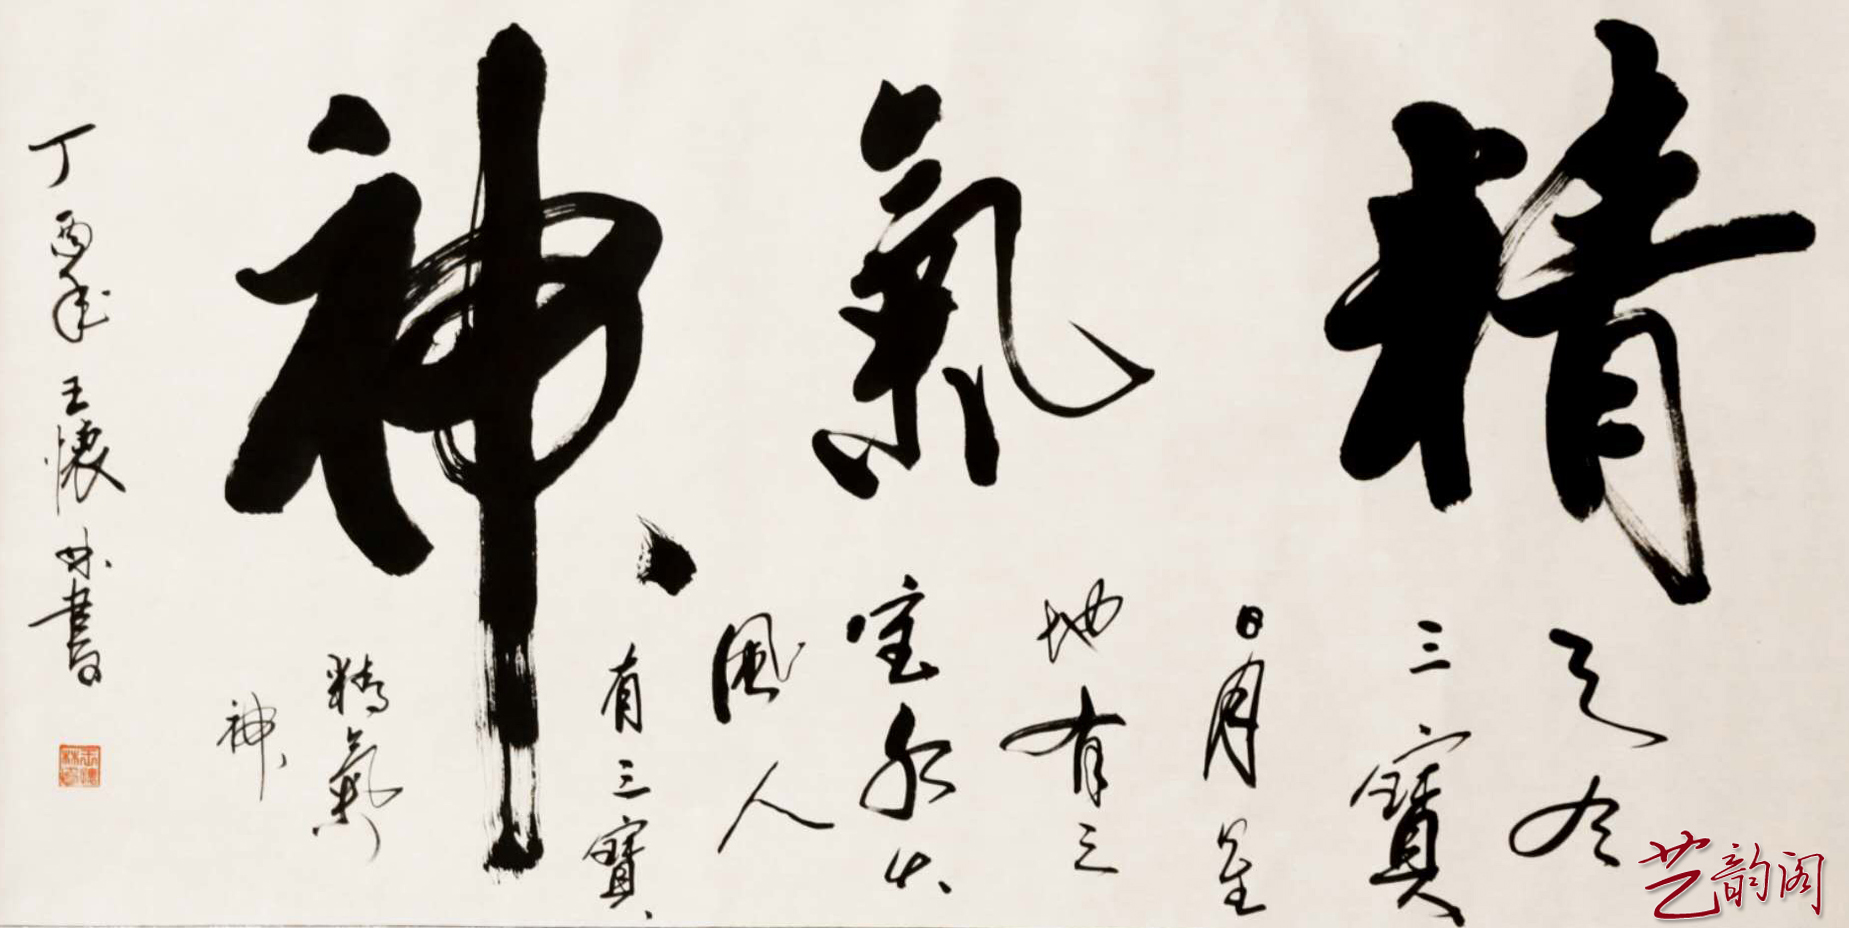 精氣神
天有
三寶
日月星
地有三
宝水火
風人
有三寶
精氣
神
丁酉年王懷林書
艺韵阁